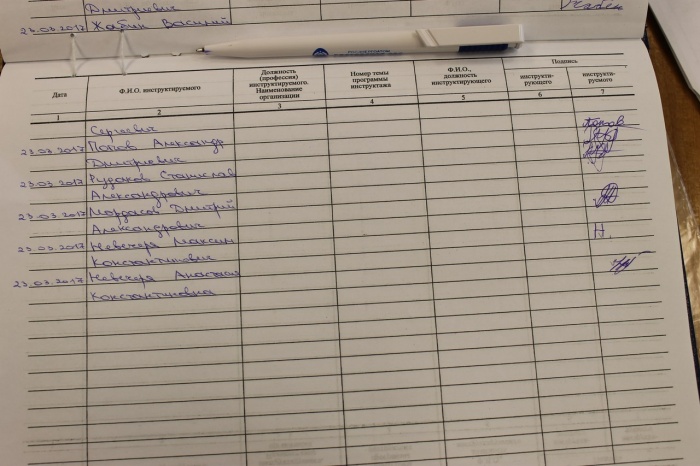 Дмитриевич
23.03.2017 Жабин Василий
Дата
Ф.И.О. инструктируемого
Должность
(профессия)
инструктируемого.
Наименование
организации
Номер темы
программы
инструктажа
Ф.И.О.,
должность
инструктирующего
Подпись
инструкти-
рующего
инструкти-
руемого
1 2 3 4 5 6 7
Сергеевич
23.03.2017 Попов Александр Попов
Дмитриевич
23.03.2017 Рудаков Станислав
Александрович
23.03.2017 Мордасов Дмитрий
Александрович
23.03.2017 Невечеря Максим Н.
Константинович
23.03.2017 Невечеря Анастасия
Константиновна